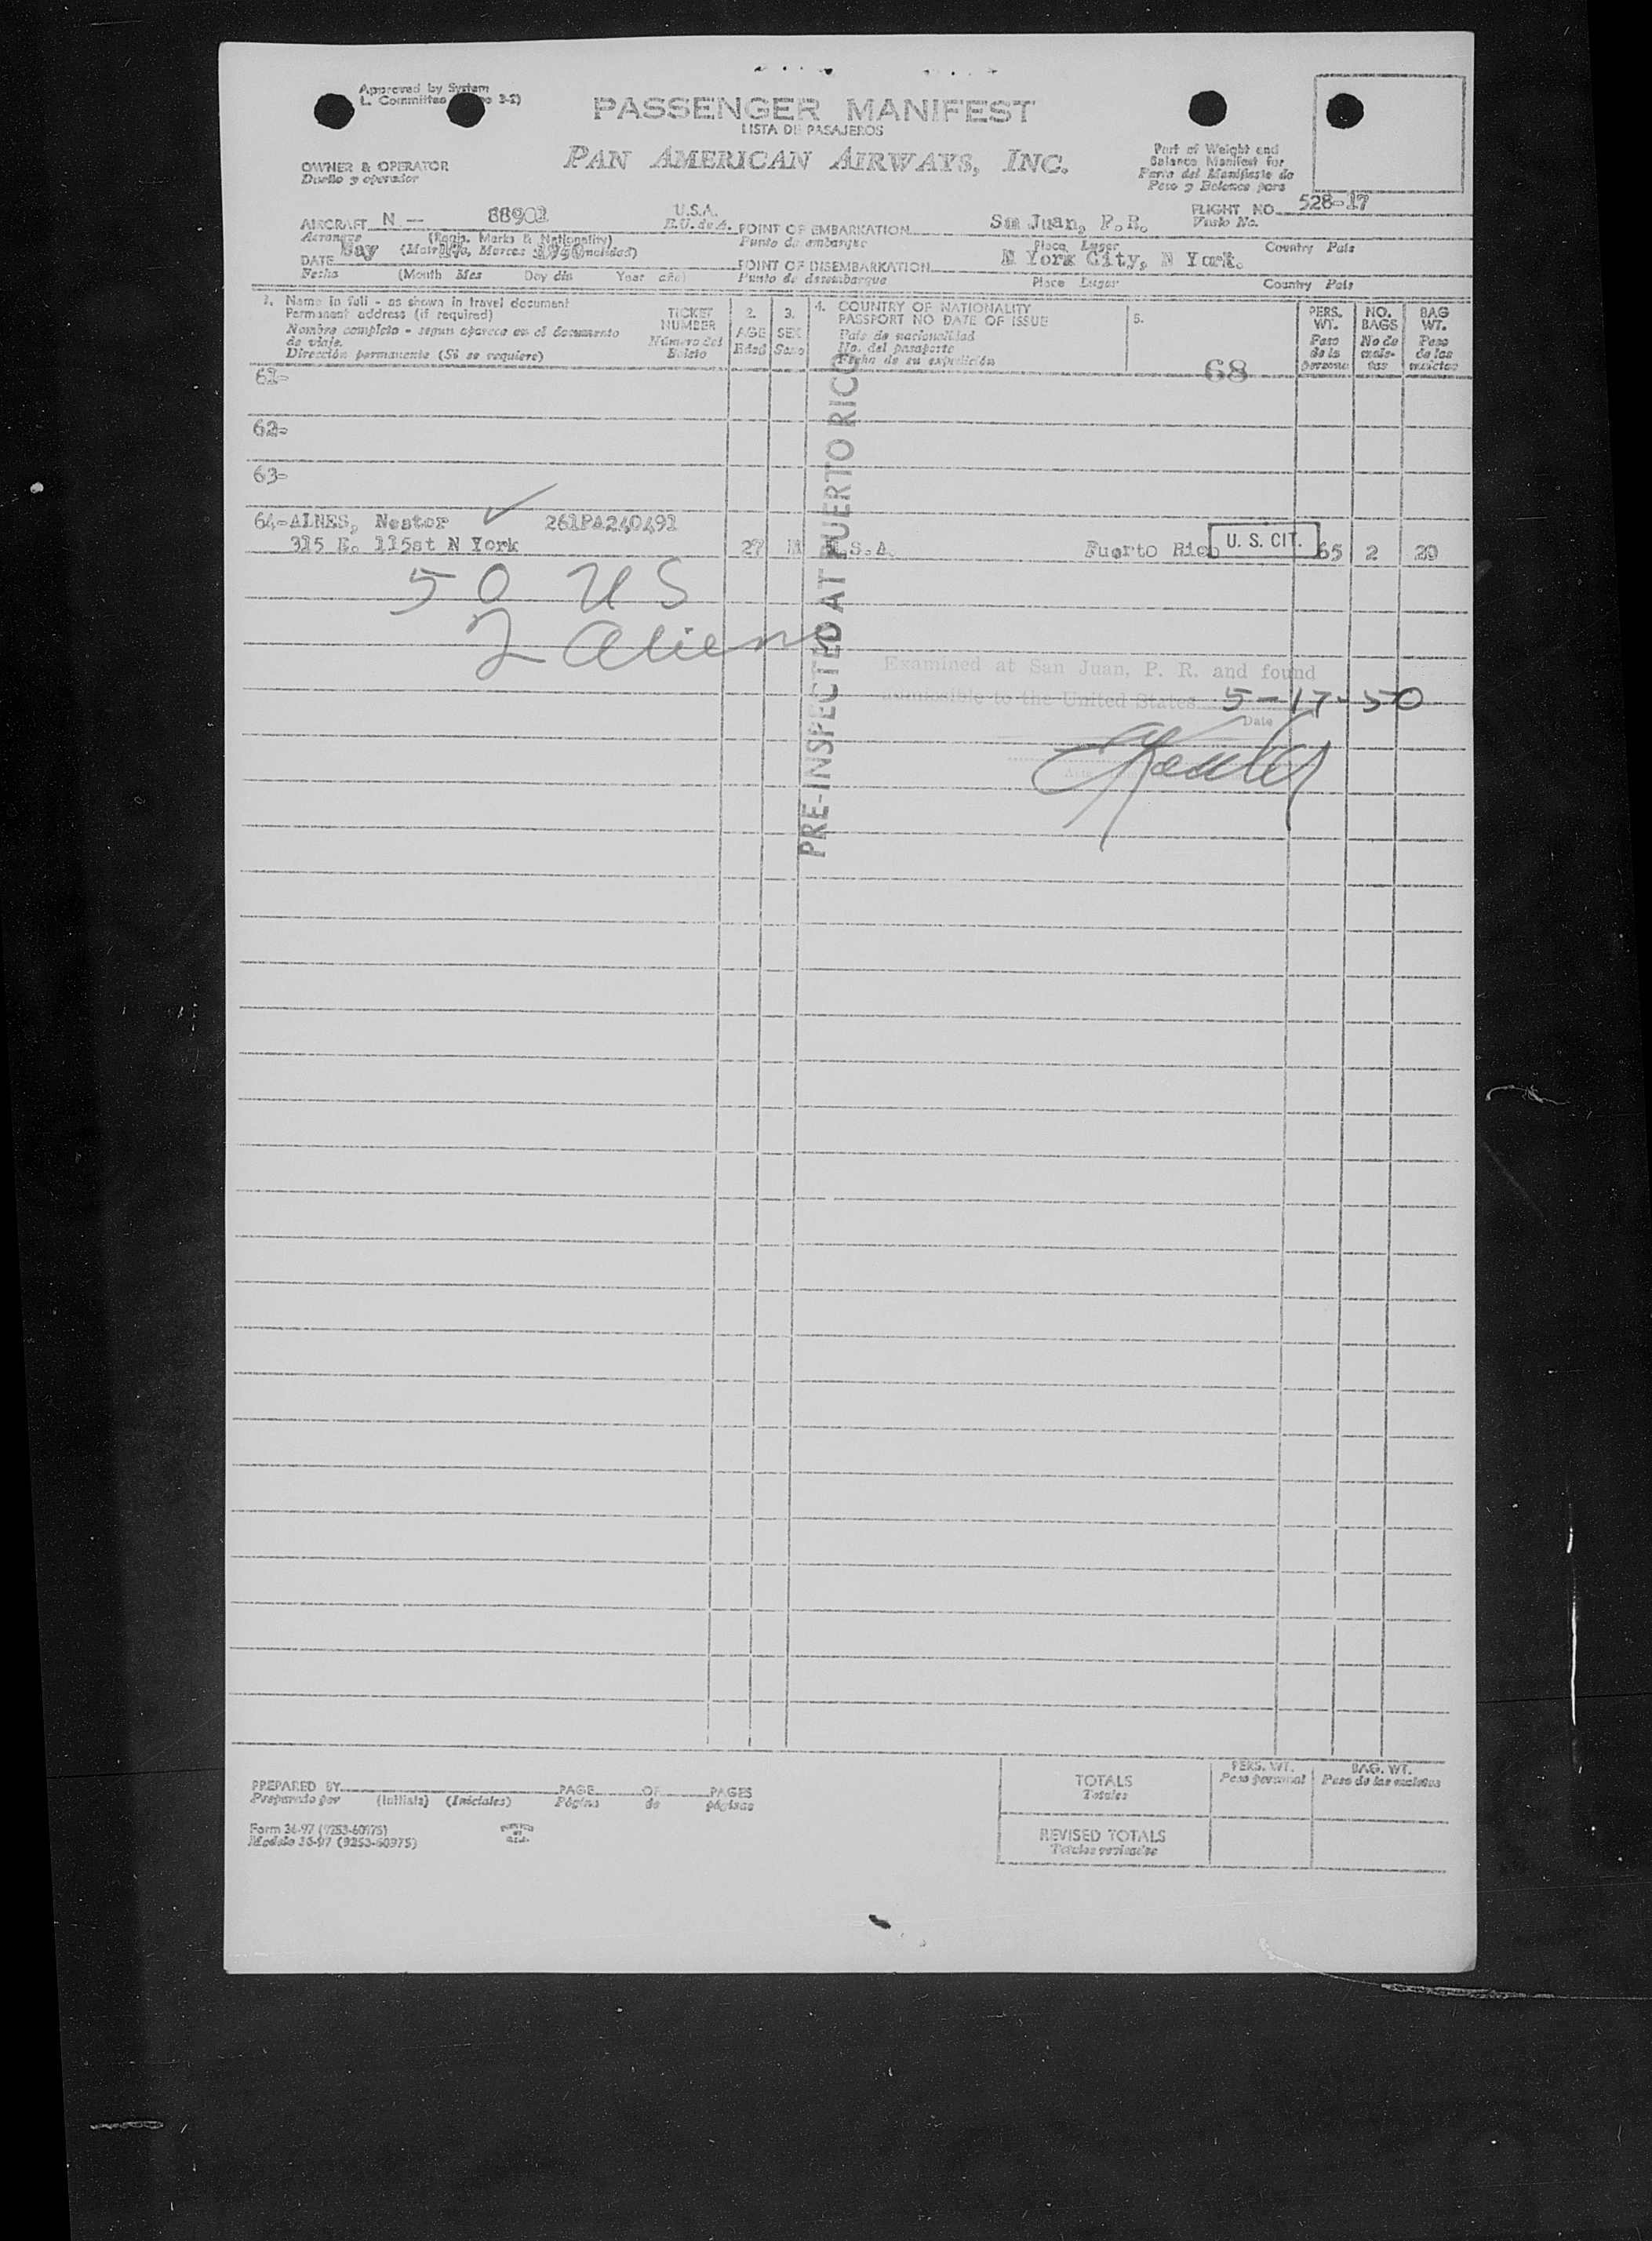 Approved by System
L. Committee 3-2)
PASSENGER MANIFEST
LISTA DE PASAJEROS
PAN AMERICAN AIRWAYS, INC.
OWNER & OPERATOR
Dueño y operador
Part of Weight and
Balance Manifest for
Parte del Manifiesto de
Peso y Balance para
FLIGHT NO. 528-17
Vuelo No.
AIRCRAFT N - 88901 U.S.A.
E.U. de A.
Aeronave (Regis. Marks & Nationality)
POINT OF EMBARKATION San Juan, P.R.
Punto de embarque Place Lugar Country País
DATE May 17, 1950
Fecha (Month Mes Day día Year año)
POINT OF DISEMBARKATION N York City, N York.
Punto de desembarque Place Lugar Country País
1. Name in full - as shown in travel document
Permanent address (if required)
Nombre completo - segun aparece en el documento
de viaje.
Dirección permanente (Si se requiere)
TICKET
NUMBER
Número del
Boleto
2.
AGE
Edad
3.
SEX
Sexo
4. COUNTRY OF NATIONALITY
PASSPORT NO DATE OF ISSUE
País de nacionalidad
No. del pasaporte
Fecha de su expedición
5.
68
PERS.
WT.
Peso
de la
persona
NO.
BAGS
No de
male-
tas
BAG
WT.
Peso
de las
maletas
61-
62-
63-
64-ALNES, Nestor 261PA240491
315 E. 115st N York 27 M U.S.A. Puerto Rico U. S. CIT. 65 2 20
50 US
2 Aliens
PRE-INSPECTED AT PUERTO RICO
Examined at San Juan, P. R. and found
admissible to the United States 5-17-50
Date
PREPARED BY PAGE OF PAGES
Preparado por (Initials) (Iniciales) Página de páginas
Form 36-97 (9253-60975)
Modelo 36-97 (9253-60975)
PERS. WT.
Peso personal
BAG. WT.
Peso de las maletas
TOTALS
Totales
REVISED TOTALS
Totales revisados